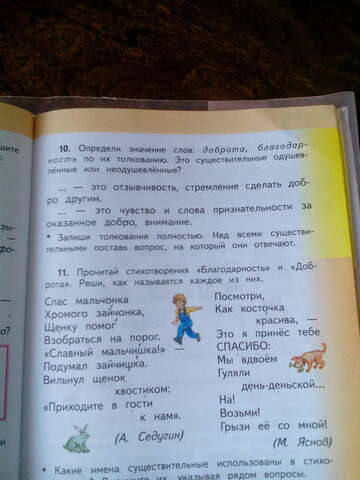 10. Определи значение слов: доброта, благодар-
ность по их толкованию. Это существительные одушев-
лённые или неодушевлённые?
... — это отзывчивость, стремление сделать доб-
ро другим.
... — это чувство и слова признательности за
оказанное добро, внимание.
• Запиши толкования полностью. Над всеми существи-
тельными поставь вопрос, на который они отвечают.
11. Прочитай стихотворения «Благодарность» и «Доб-
рота». Реши, как называется каждое из них.
Спас мальчонка
Хромого зайчонка,
Щенку помог
Взобраться на порог.
«Славный мальчишка!» —
Подумал зайчишка.
Вильнул щенок
хвостиком:
«Приходите в гости
к нам».
(А. Седугин)
Посмотри,
Как косточка
красива, —
Это я принёс тебе
СПАСИБО:
Мы вдвоём
Гуляли
день-деньской...
На!
Возьми!
Грызи её со мной!
(М. Яснов)
• Какие имена существительные использованы в стихо-
указывая рядом вопросы.